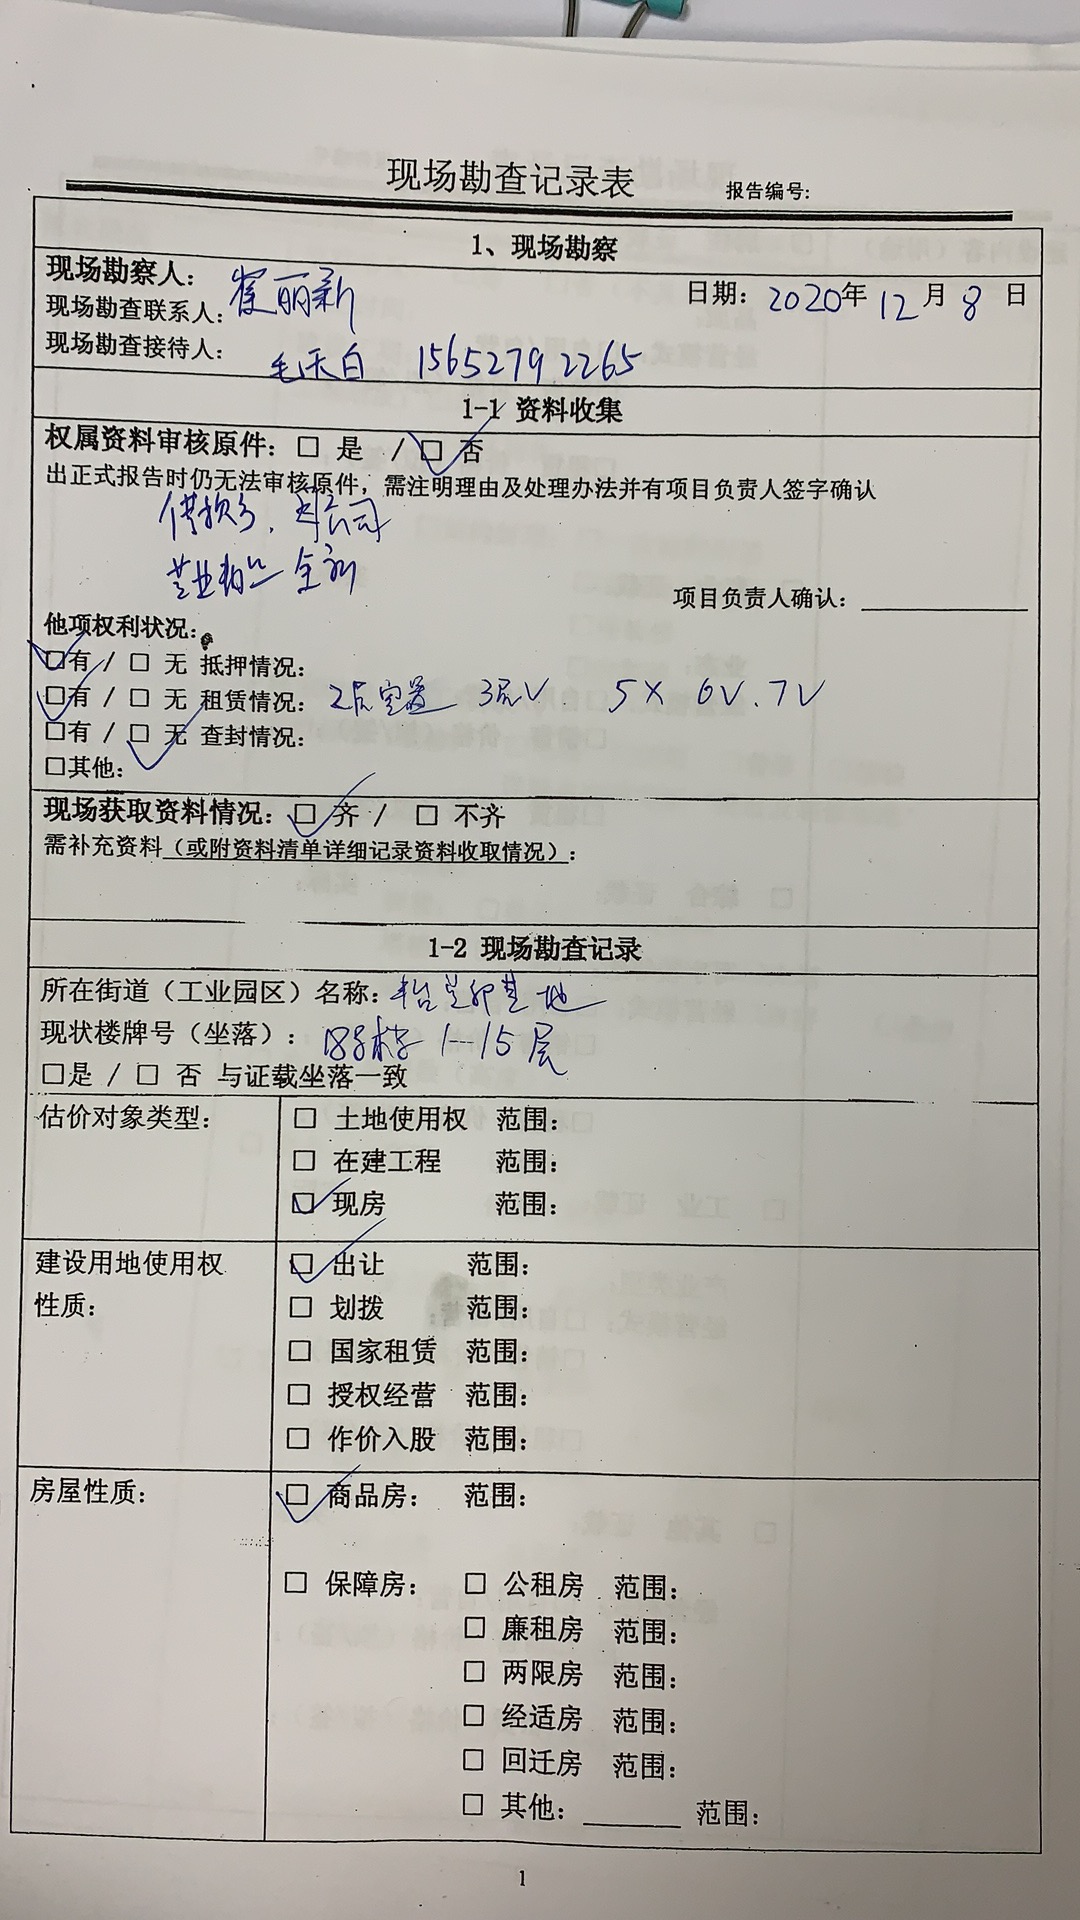 现场勘查记录表 报告编号:
1、现场勘察
现场勘察人: 崔丽新 日期: 2020年 12 月 8 日
现场勘查联系人:
现场勘查接待人: 毛天白 15652792265
1-1 资料收集
权属资料审核原件: □ 是 / ☑ 否
出正式报告时仍无法审核原件,需注明理由及处理办法并有项目负责人签字确认
项目负责人确认:
他项权利状况:
☑有 / □ 无 抵押情况:
☑有 / □ 无 租赁情况: 2层空置 3层√ 5× 6√.7√
□有 / ☑ 无 查封情况:
□其他:
现场获取资料情况: ☑ 齐 / □ 不齐
需补充资料(或附资料清单详细记录资料收取情况):
1-2 现场勘查记录
所在街道(工业园区)名称: 基地
现状楼牌号(坐落): 18号楼 1-15层
□是 / □ 否 与证载坐落一致
估价对象类型: □ 土地使用权 范围:
□ 在建工程 范围:
☑ 现房 范围:
建设用地使用权 ☑ 出让 范围:
性质: □ 划拨 范围:
□ 国家租赁 范围:
□ 授权经营 范围:
□ 作价入股 范围:
房屋性质: ☑ 商品房: 范围:
□ 保障房: □ 公租房 范围:
□ 廉租房 范围:
□ 两限房 范围:
□ 经适房 范围:
□ 回迁房 范围:
□ 其他: 范围:
1